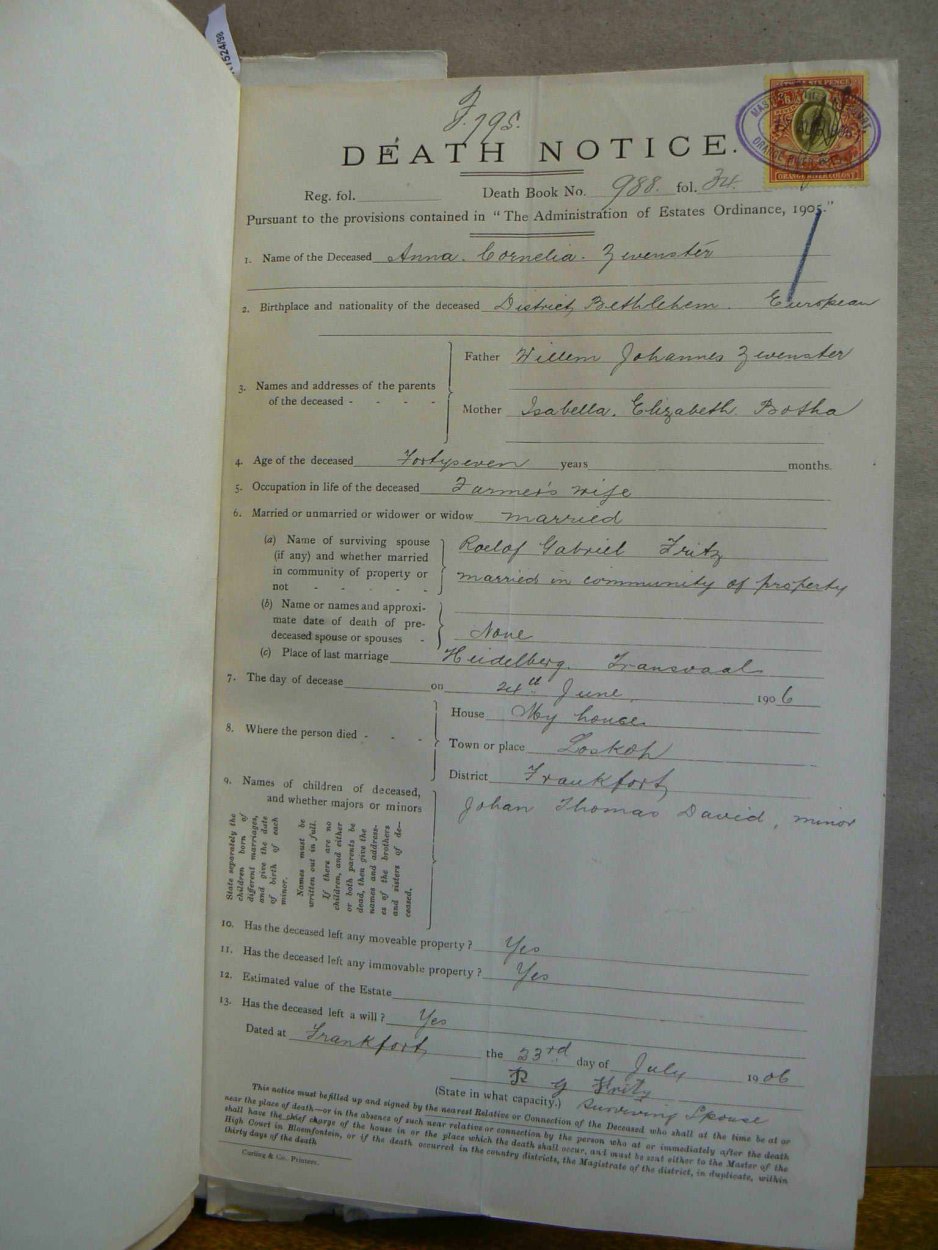 1524/98
F. 795.
DEATH NOTICE.
ORANGE RIVER COLONY
Reg. fol. Death Book No. 988. fol. 34.
Pursuant to the provisions contained in "The Administration of Estates Ordinance, 1905."
1. Name of the Deceased Anna. Cornelia. Zwenster
2. Birthplace and nationality of the deceased District, Bethlehem. European
3. Names and addresses of the parents of the deceased - - - -
Father Willem Johannes Zwenster
Mother Isabella. Elizabeth Botha
4. Age of the deceased Fortyseven years months.
5. Occupation in life of the deceased Farmer's wife
6. Married or unmarried or widower or widow married
(a) Name of surviving spouse
(if any) and whether married
in community of property or
not - - - - -
Roelof Gabriel Fritz
married in community of property
(b) Name or names and approxi-
mate date of death of pre-
deceased spouse or spouses -
None
(c) Place of last marriage Heidelberg. Transvaal
7. The day of decease on 24th June 1906
8. Where the person died - - -
House My house
Town or place Loskop
District Frankfort
9. Names of children of deceased,
and whether majors or minors
State separately the
children born of
different marriages,
and give the date
of birth of each
minor.
Names must be
written out in full.
If there are no
children, and either
or both parents be
dead, then give the
names and address-
es of the brothers
and sisters of de-
ceased.
Johan Thomas David, minor
10. Has the deceased left any moveable property? Yes
11. Has the deceased left any immovable property? Yes
12. Estimated value of the Estate
13. Has the deceased left a will? Yes
Dated at Frankfort the 23rd day of July 1906
R G Fritz
(State in what capacity.) Surviving Spouse
This notice must be filled up and signed by the nearest Relative or Connection of the Deceased who shall at the time be at or
near the place of death—or in the absence of such near relative or connection by the person who at or immediately after the death
shall have the chief charge of the house in or the place which the death shall occur, and must be sent either to the Master of the
High Court in Bloemfontein, or if the death occurred in the country districts, the Magistrate of the district, in duplicate, within
thirty days of the death
Curling & Co. Printers.